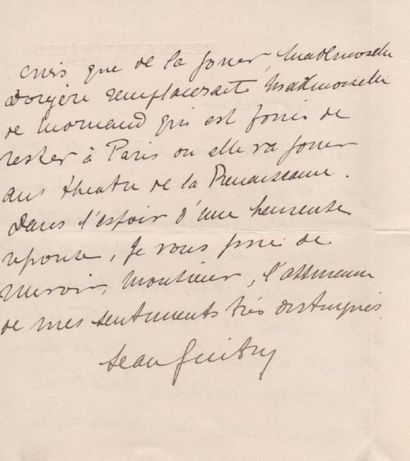 que de la jouer, Mademoiselle
Dorgère remplacerait Mademoiselle
de Mornand qui est forcée de
rester à Paris ou elle va jouer
au théâtre de la Renaissance.
Dans l'espoir d'une heureuse
réponse, je vous prie de
recevoir, Monsieur, l'assurance
de mes sentiments très distingués
Jean Guitry